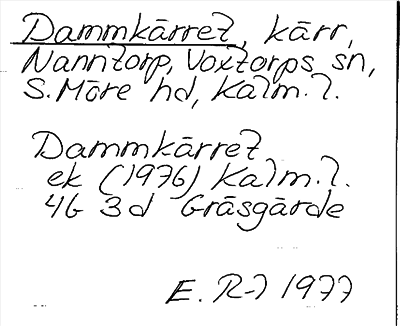 Dammkärret, kärr,
Nanntorp, Voxtorps sn,
S. Möre hd, Kalm. l.
Dammkärret
ek (1976) Kalm. l.
4G 3d Gräsgärde
E. R-l 1977